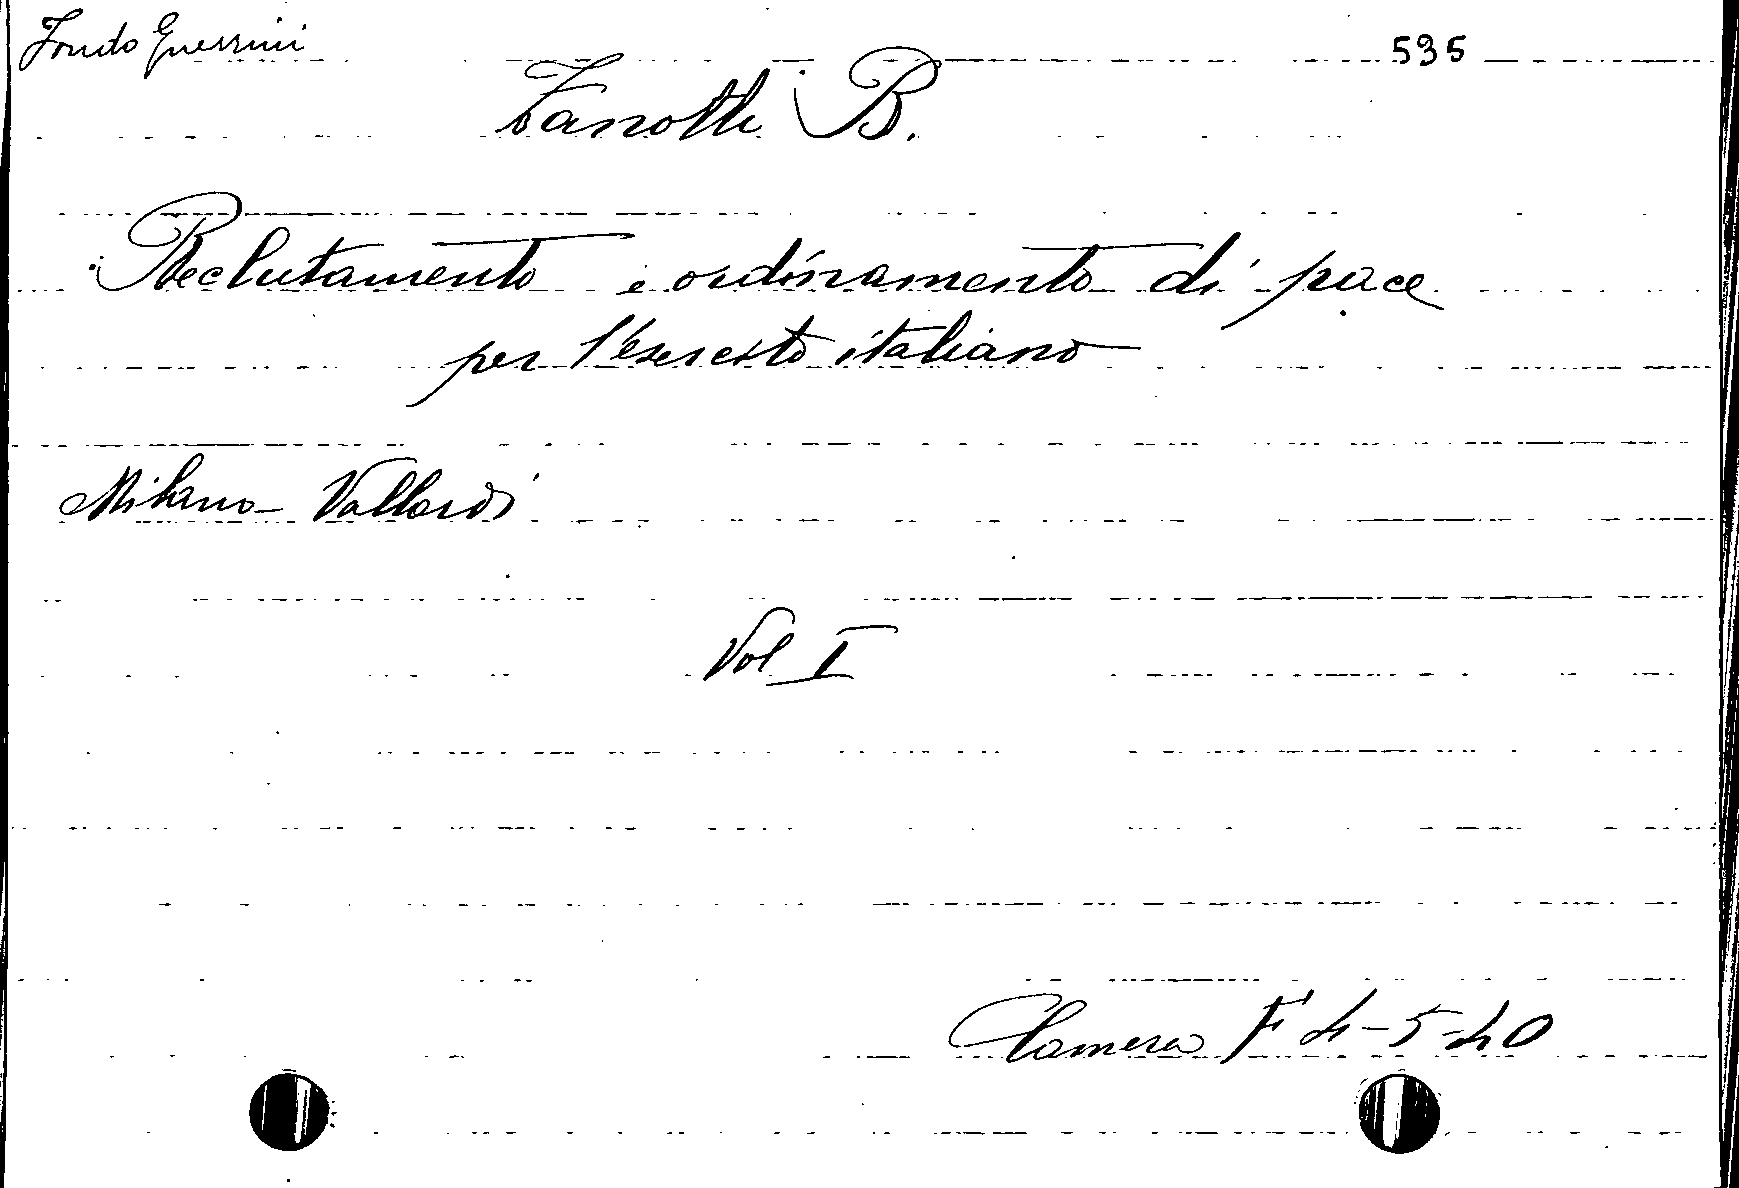 Fondo Guerrini 535
Zanotti B.
Reclutamento e ordinamento di pace
per l'esercito italiano
Milano - Vallardi
Vol I
Camera F 4-5-40